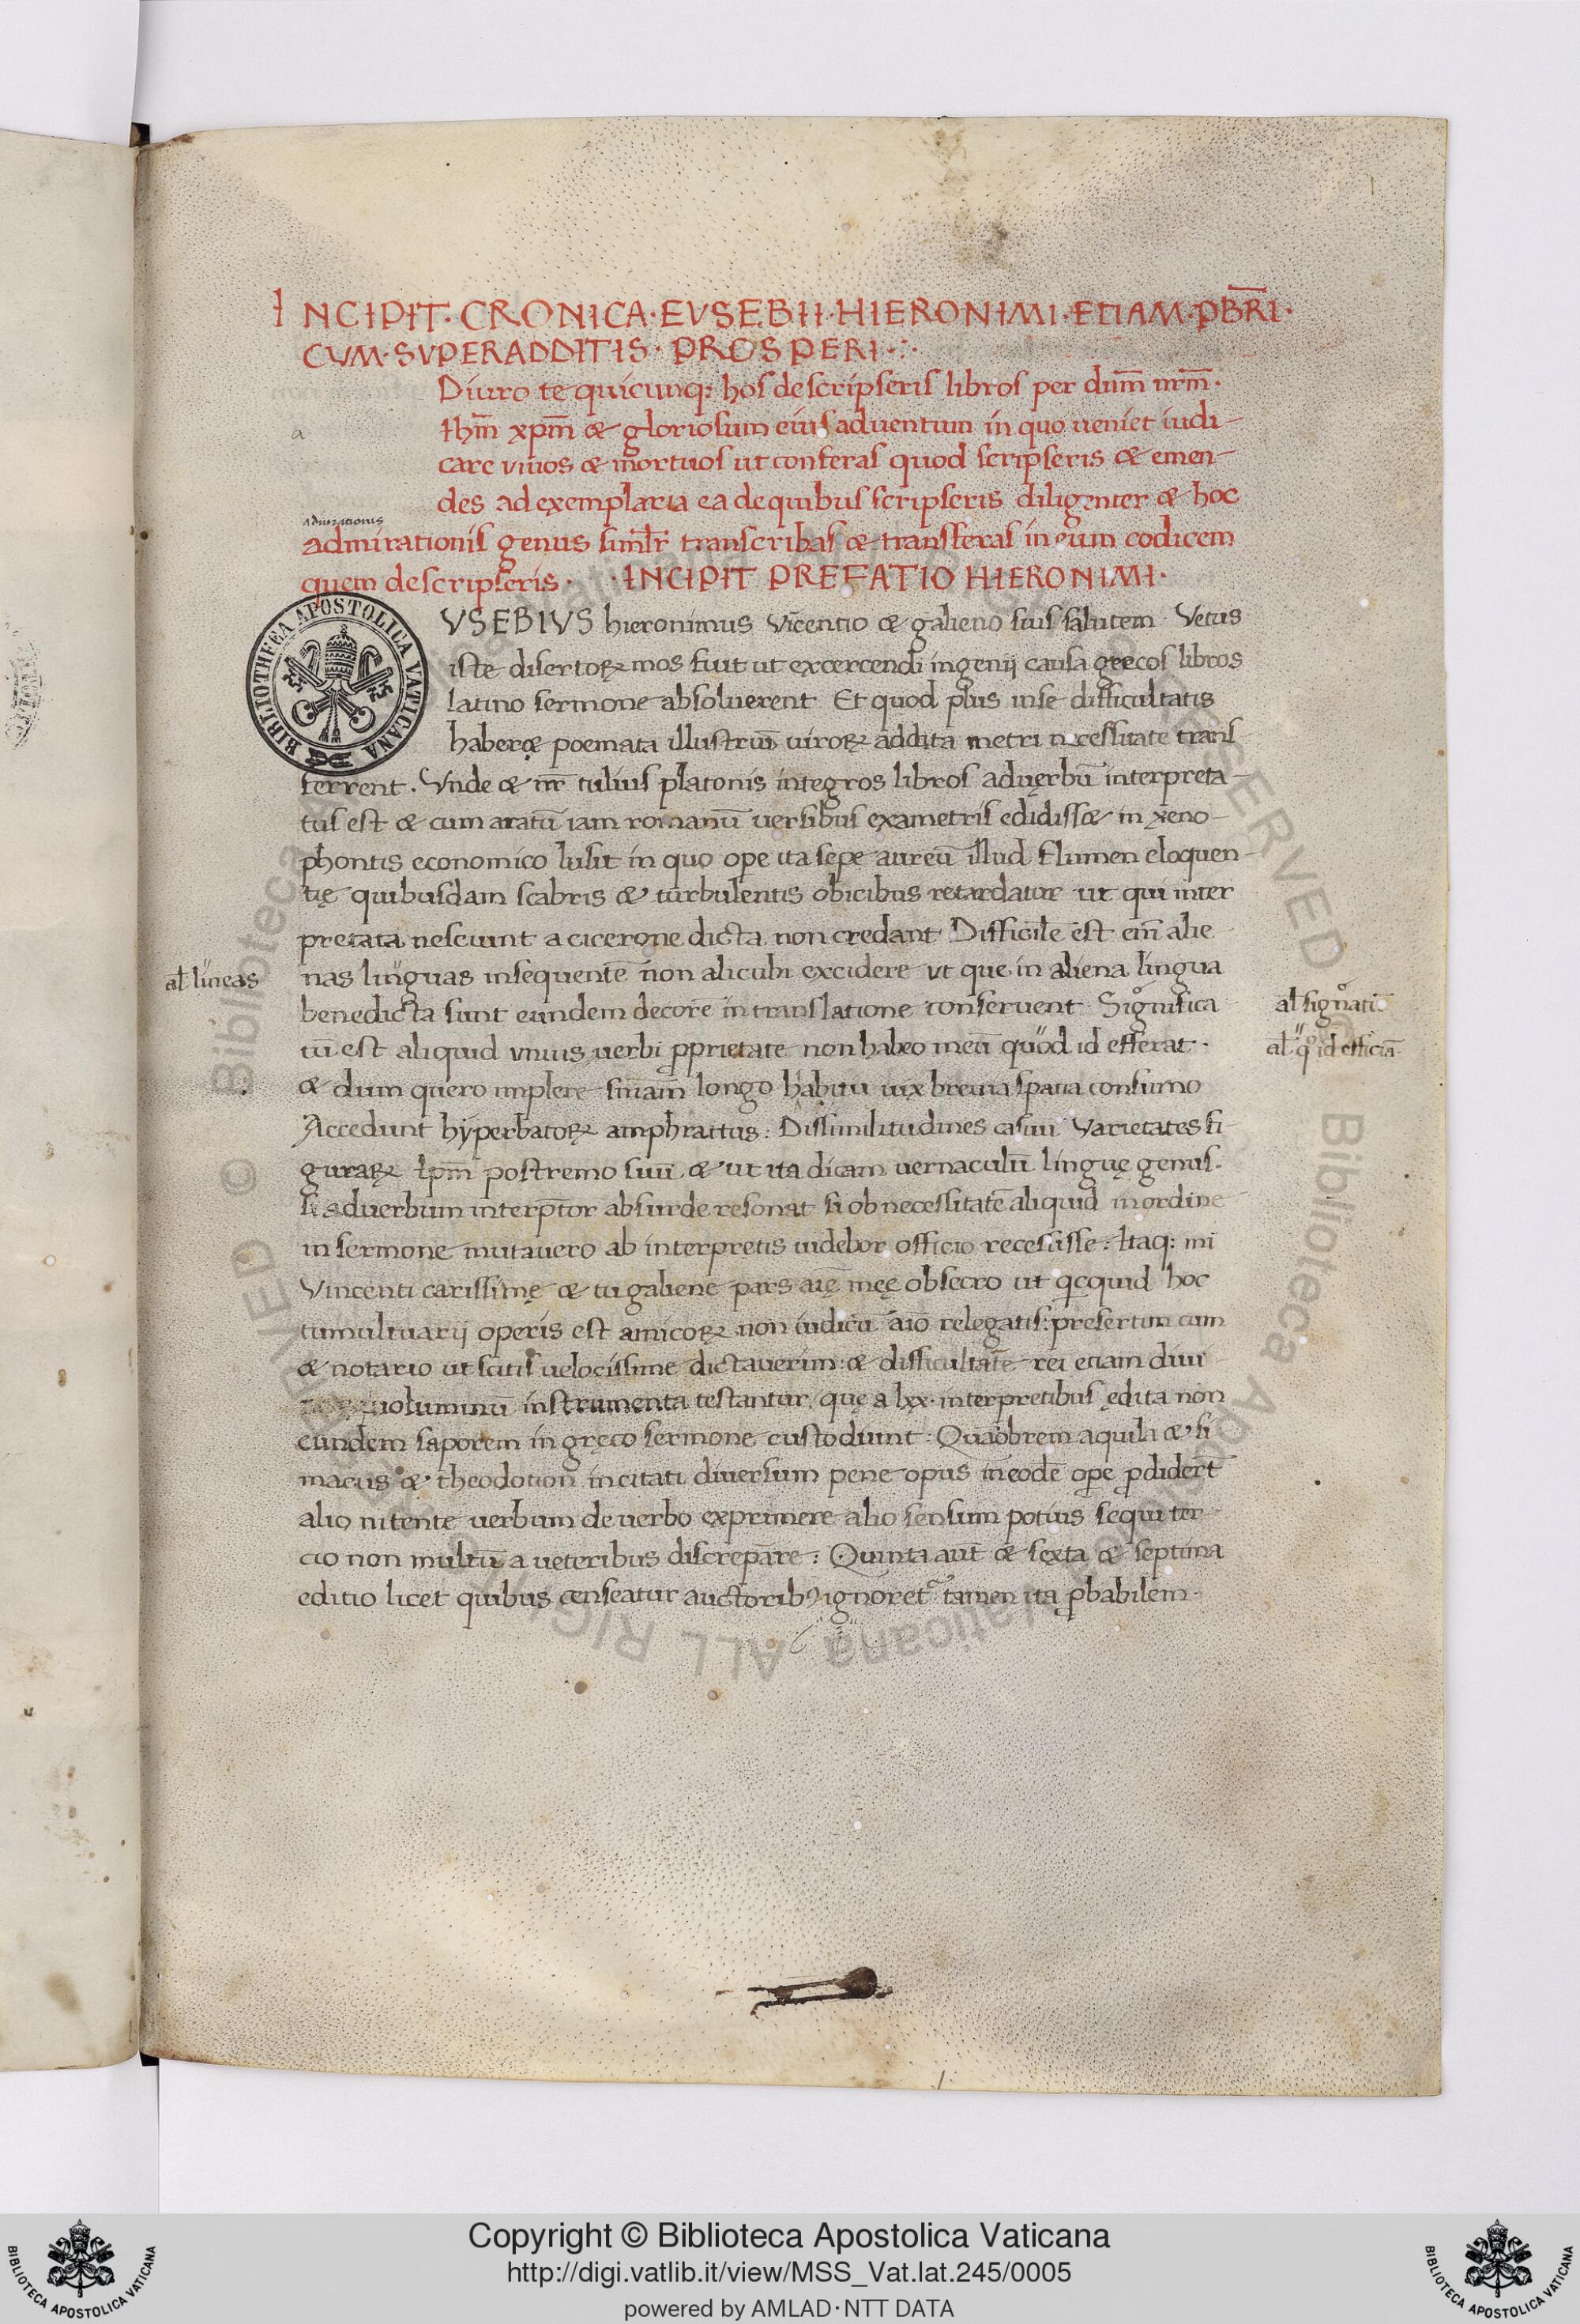 INCIPIT·CRONICA·EVSEBII·HIERONIMI·ETIAM·PBR̅I·
CUM·SUPERADDITIS·PROSPERI·:·
Diuro te quicunq: hos descripseris libros per dum̅ nrm̅·
Ihm̅ xpm̅ & gloriosum eius aduentum in quo ueniet iudi-
a
care viuos & mortuos ut conferas quod scripseris & emen-
des ad exemplaria ea de quibus scripseris diligenter & hoc
admirationis
admirationis genus siml̅r transcribas & transferas in eum codicem
quem descripseris· ·INCIPIT PREFATIO HIERONIMI·
VSEBIVS hieronimus Vice̅ntio & galieno suis salutem· Vetus
iste disertoꝝ mos fuit ut excercendi ingenij causa grecos libros
latino sermone absoluerent· Et quod plus in se difficultatis
haber& poemata illustriu̅ uiroꝝ addita metri necessitate trans
ferrent. Vnde & nr̅ tulius platonis integros libros ad uerbu̅ interpreta-
tus est & cum aratu̅ iam romanu̅ uersibus exametris edidiss& in xeno-
phontis economico lusit in quo ope ita sepe aureu̅ illud flumen eloquen-
tię quibusdam scabris & turbulentis obicibus retardatur ut qui inter
pretata nesciunt a cicerone dicta non credant· Difficile est eni̅ alie
al̅ lineas
nas linguas insequente̅ non alicubi excidere ut que in aliena lingua
benedicta sunt eundem decore̅ in translatione conseruent· Significa
al̅ signati̅
tu̅ est aliquid vnius uerbi ꝓprietate non habeo meu̅ quod id efferat·
al̅ qo id efficia̅
& dum quero implere sn̅iam longo habitu uix breuia spatia consumo
Accedunt hyperbatoꝝ amphractus: Dissimilitudines casuu̅ Varietates fi-
guraꝝ Ipm̅ postremo suu̅ & ut ita dicam uernaculu̅ linguę genus.
Si ad uerbum interp̅tor absurde resonat si ob necessitate̅ aliquid in ordine
in sermone mutauero ab interpretis uidebor officio recessisse: Itaq: mi
Vincenti carissimę & tu galiene pars aię meę obsecro ut qcquid hoc
tumultuarij operis est amicoꝝ non iudicu̅ aio̅ relegatis: presertim cum
& notario ut scitis velocissime dictauerim: & difficultate̅ rei etiam diui
uoluminu̅ instrumenta testantur, quę a lxx· interpretibus ędita non
eundem saporem in gręco sermone custodiunt: Qua̅obrem aquila & si
macus & theodotion incitati diuersum pene opus in eode̅ ope ꝓdidert̅
alio nitente uerbum de uerbo exprimere alio sensum potius sequi ter-
cio non multu̅ a ueteribus discrepare: Quinta aut̅ & sexta & septima
editio licet quibus censeatur auctorib9 ignoret᷒ tamen ita ꝓbabilem·
BIBLIOTHECA APOSTOLICA VATICANA
© Biblioteca Apostolica Vaticana ALL RIGHTS RESERVED
Copyright © Biblioteca Apostolica Vaticana
http://digi.vatlib.it/view/MSS_Vat.lat.245/0005
powered by AMLAD·NTT DATA
BIBLIOTECA APOSTOLICA VATICANA
BIBLIOTECA APOSTOLICA VATICANA